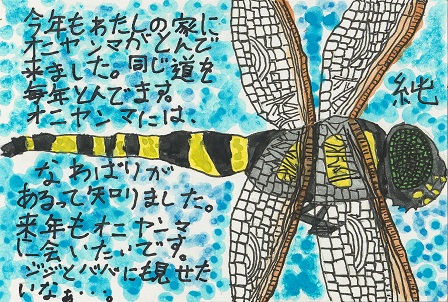 今年もわたしの家に
オニヤンマがとんで
来ました。同じ道を
毎年とんでます。
オニヤンマには、
なわばりが
あるって知りました。
来年もオニヤンマ
に会いたいです。
ジジとババにも見せた
いなぁ…。
純